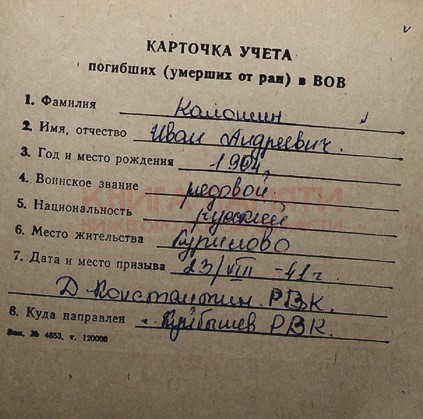 КАРТОЧКА УЧЕТА
погибших (умерших от ран) в ВОВ
1. Фамилия Калошин
2. Имя, отчество Иван Андреевич.
3. Год и место рождения 1904,
4. Воинское звание рядовой
5. Национальность русский
6. Место жительства Курилово
7. Дата и место призыва 23/VIII-41г.
Д-Константин. РВК.
8. Куда направлен Куйбышев РВК.
Зак. № 4853, т. 120000
КНИГА ПАМЯТИ
НИЖЕГОРОДСКОЙ ОБЛАСТИ